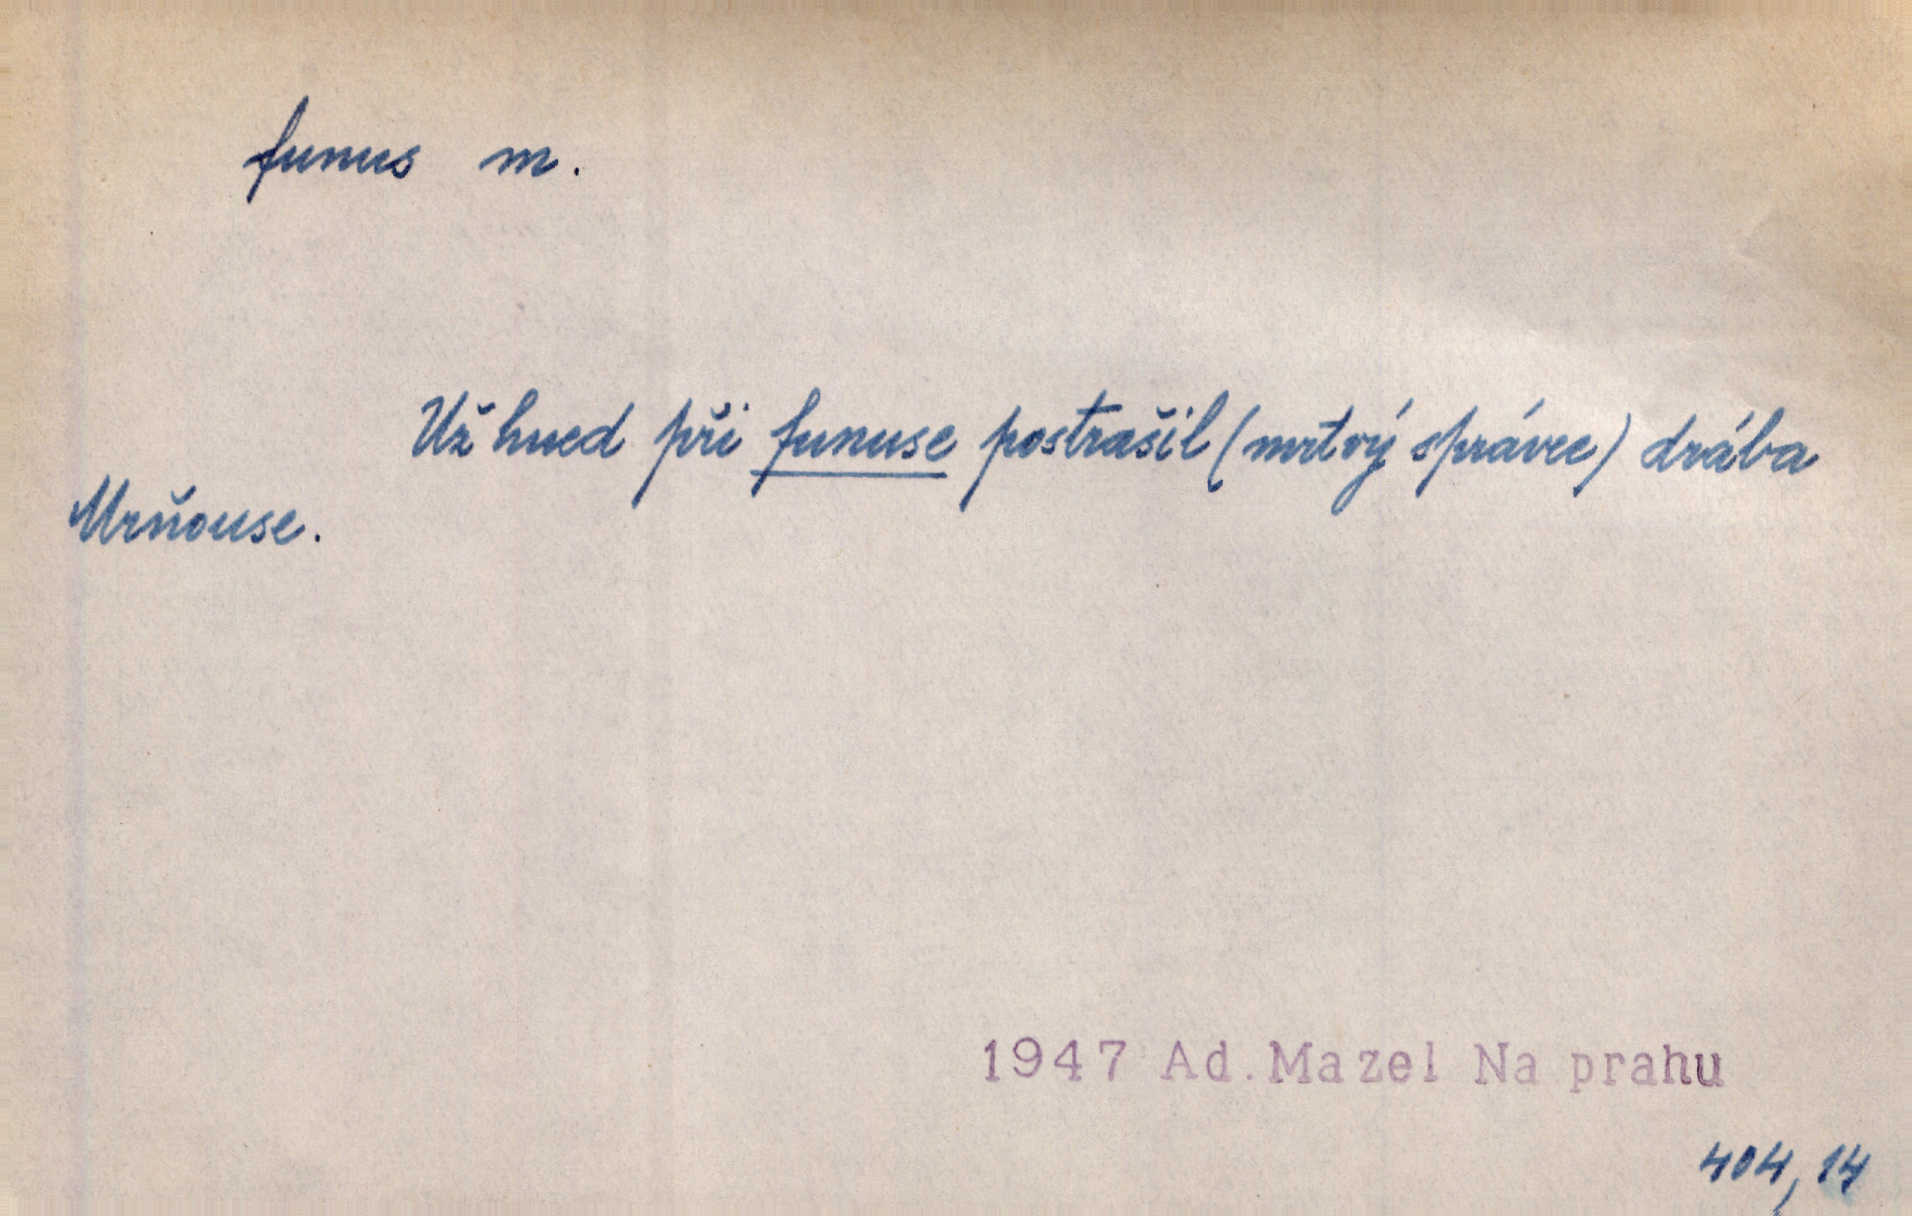 funus m.
Už hned při funuse postrašil (mrtvý správce) drába
Mrňouse.
1947 Ad. Mazel Na prahu
404, 14